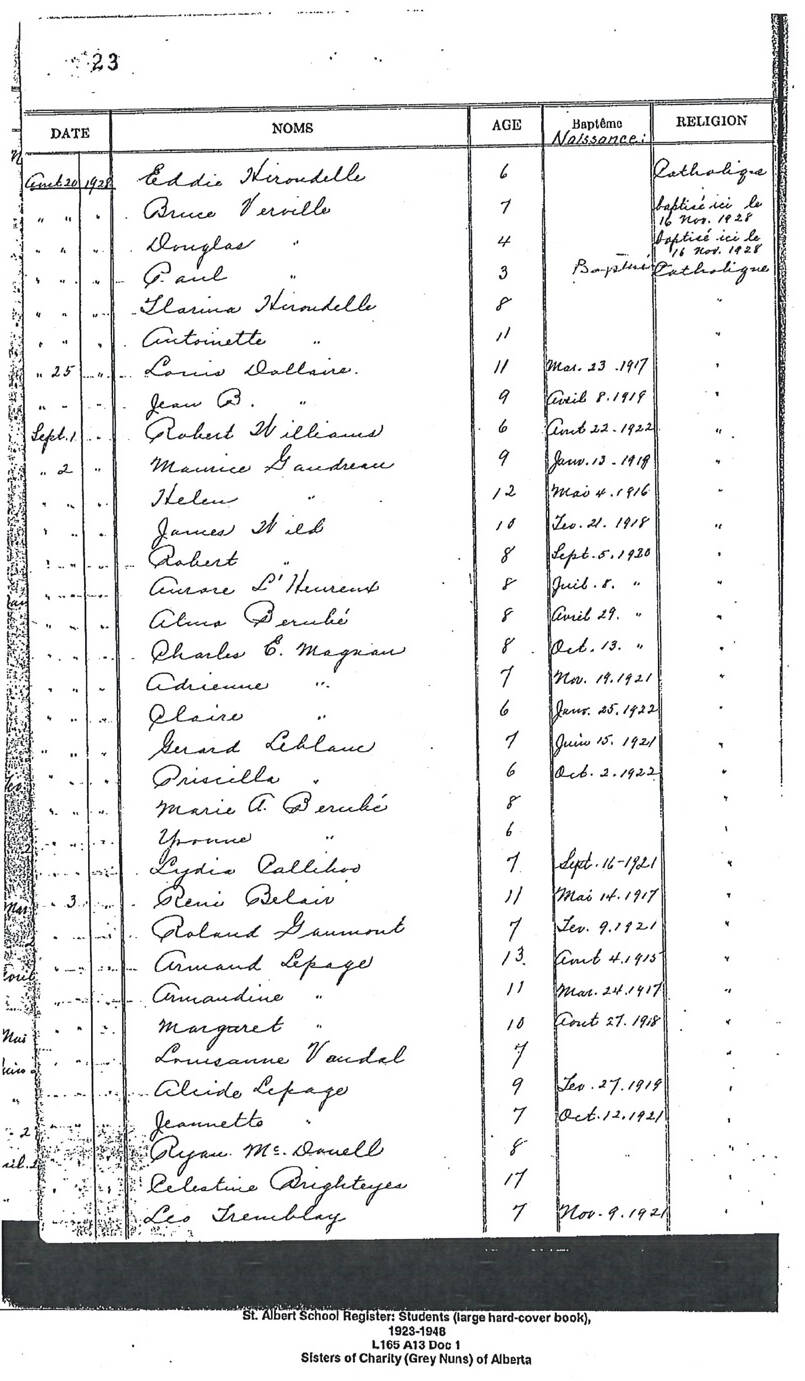 23
DATE NOMS AGE Baptême Naissance: RELIGION
Aout 20 1928 Eddie Hirondelle 6 Catholique
" " " Bruce Verville 7 baptisé ici le 16 Nov. 1928
" " " Douglas " 4 baptisé ici le 16 Nov. 1928
" " " Paul " 3 Baptisé Catholique
" " " Florina Hirondelle 8 "
" " " Antoinette " 11 "
" 25 " Louis Dallaire. 11 Mar. 23. 1917 "
" " " Jean B. " 9 Avril 8. 1919 "
Sept. 1 " Robert Williams 6 Aout 22 - 1922 "
" 2 " Maurice Gaudreau 9 Janv. 13 - 1919 "
" " " Helen " 12 Mai 4. 1916 "
" " " James Wild 10 Fev. 21. 1918 "
" " " Robert " 8 Sept. 5. 1920 "
" " " Aurore L'Heureux 8 Juil. 8. " "
" " " Alma Berubé 8 Avril 29. " "
" " " Charles E. Magnan 8 Oct. 13. " "
" " " Adrienne " 7 Nov. 19. 1921 "
" " " Claire " 6 Janv. 25. 1922 "
" " " Gerard Leblanc 7 Juin 15. 1921 "
" " " Priscilla " 6 Oct. 2. 1922 "
" " " Marie A. Berubé 8 "
" " " Yvonne " 6 "
" " " Lydia Callihoo 7 Sept. 16 - 1921 "
" 3 " René Belair 11 Mai 14. 1917 "
" " " Roland Gaumont 7 Fev. 9. 1921 "
" " " Armand Lepage 13 Aout 4. 1915 "
" " " Armandine " 11 Mar. 24. 1917 "
" " " Margaret " 10 Aout 27. 1918 "
" " " Louisanne Vandal 7 "
Alcide Lepage 9 Fev. 27. 1919 "
Jeannette " 7 Oct. 12. 1921 "
Ryan Mc. Donell 8 "
Celestine Brighteyes 17 "
Leo Tremblay 7 Nov. 9. 1921 "
St. Albert School Register: Students (large hard-cover book),
1923-1948
L165 A13 Doc 1
Sisters of Charity (Grey Nuns) of Alberta